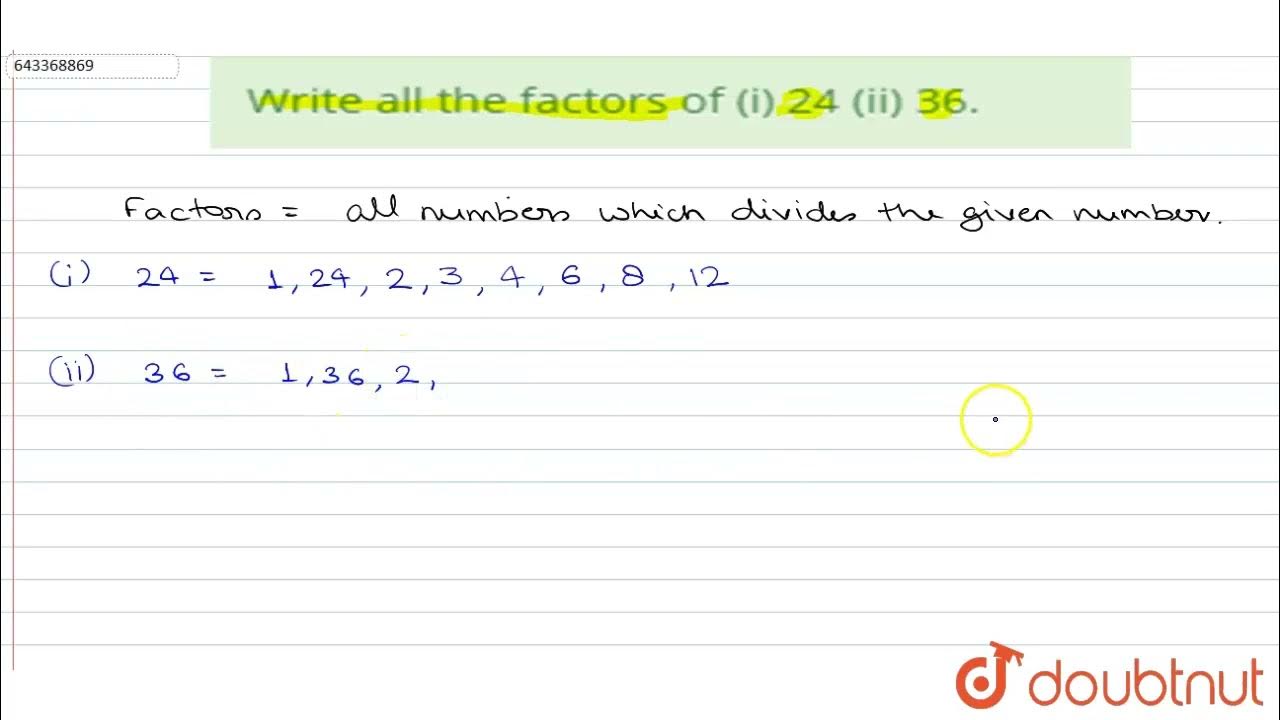 643368869
Write all the factors of (i) 24 (ii) 36.
Factors = all numbers which divides the given number.
(i) 24 = 1, 24, 2, 3, 4, 6, 8, 12
(ii) 36 = 1, 36, 2,
doubtnut